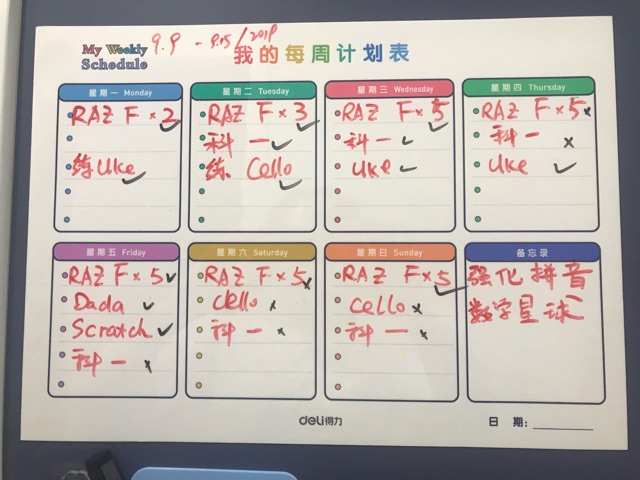 My Weekly Schedule 9.9 - 9.15/2019 我的每周计划表
星期一 Monday
RAZ F × 2 ✓
练 Uke ✓
星期二 Tuesday
RAZ F × 3 ✓
科一 ✓
练 Cello ✓
星期三 Wednesday
RAZ F × 5 ✓
科一 ✓
Uke ✓
星期四 Thursday
RAZ F × 5 ×
科一 ×
Uke ✓
星期五 Friday
RAZ F × 5 ✓
Dada ✓
Scratch ✓
科一 ×
星期六 Saturday
RAZ F × 5 ×
Cello ×
科一 ×
星期日 Sunday
RAZ F × 5 ✓
Cello ×
科一 ×
备忘录
强化拼音
数学星球
deli得力
日 期: